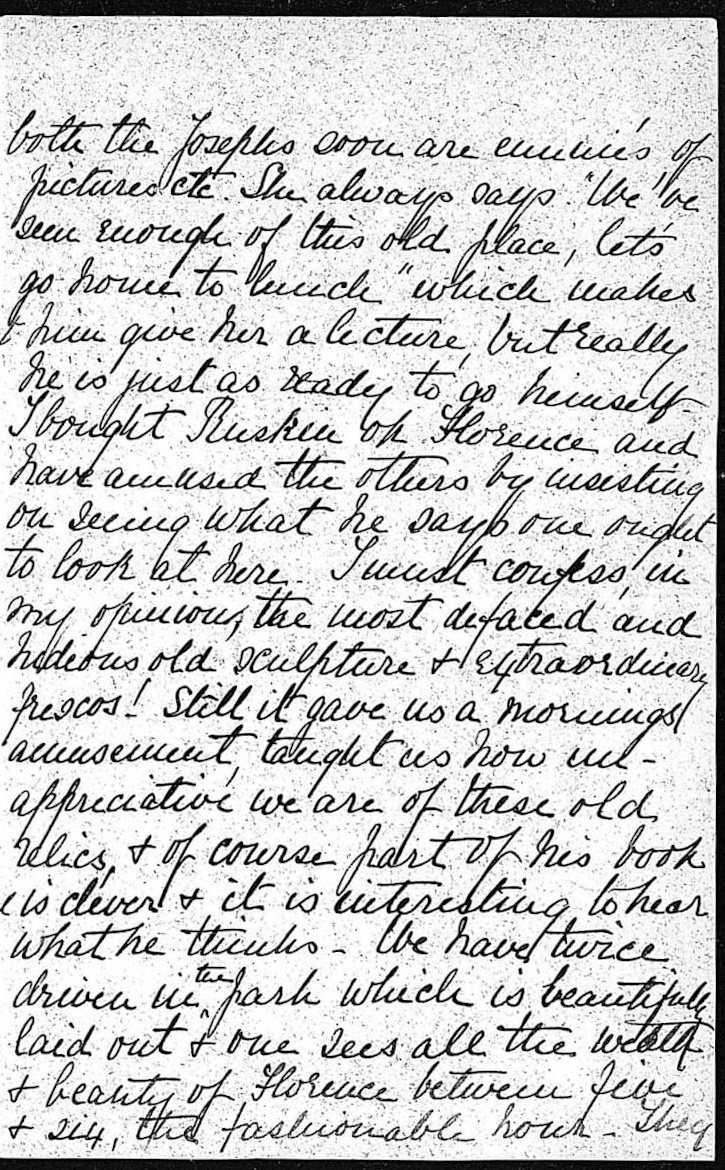 both the Josephs soon are enemies of
pictures etc. She always says "We've
seen enough of this old place, let's
go home to lunch" which makes
him give her a lecture, but really
he is just as ready to go himself-
I bought Ruskin on Florence and
have amused the others by insisting
on seeing what he says one ought
to look at here. I must confess, in
my opinion, the most defaced and
hideous old sculpture & extraordinary
frescos! Still it gave us a mornings
amusement, taught us how un-
appreciative we are of these old
relics, & of course part of his book
is clever & it is interesting to hear
what he thinks - We have twice
driven in the park which is beautifully
laid out & one sees all the wealth
& beauty of Florence between five
& six, the fashionable hour - They